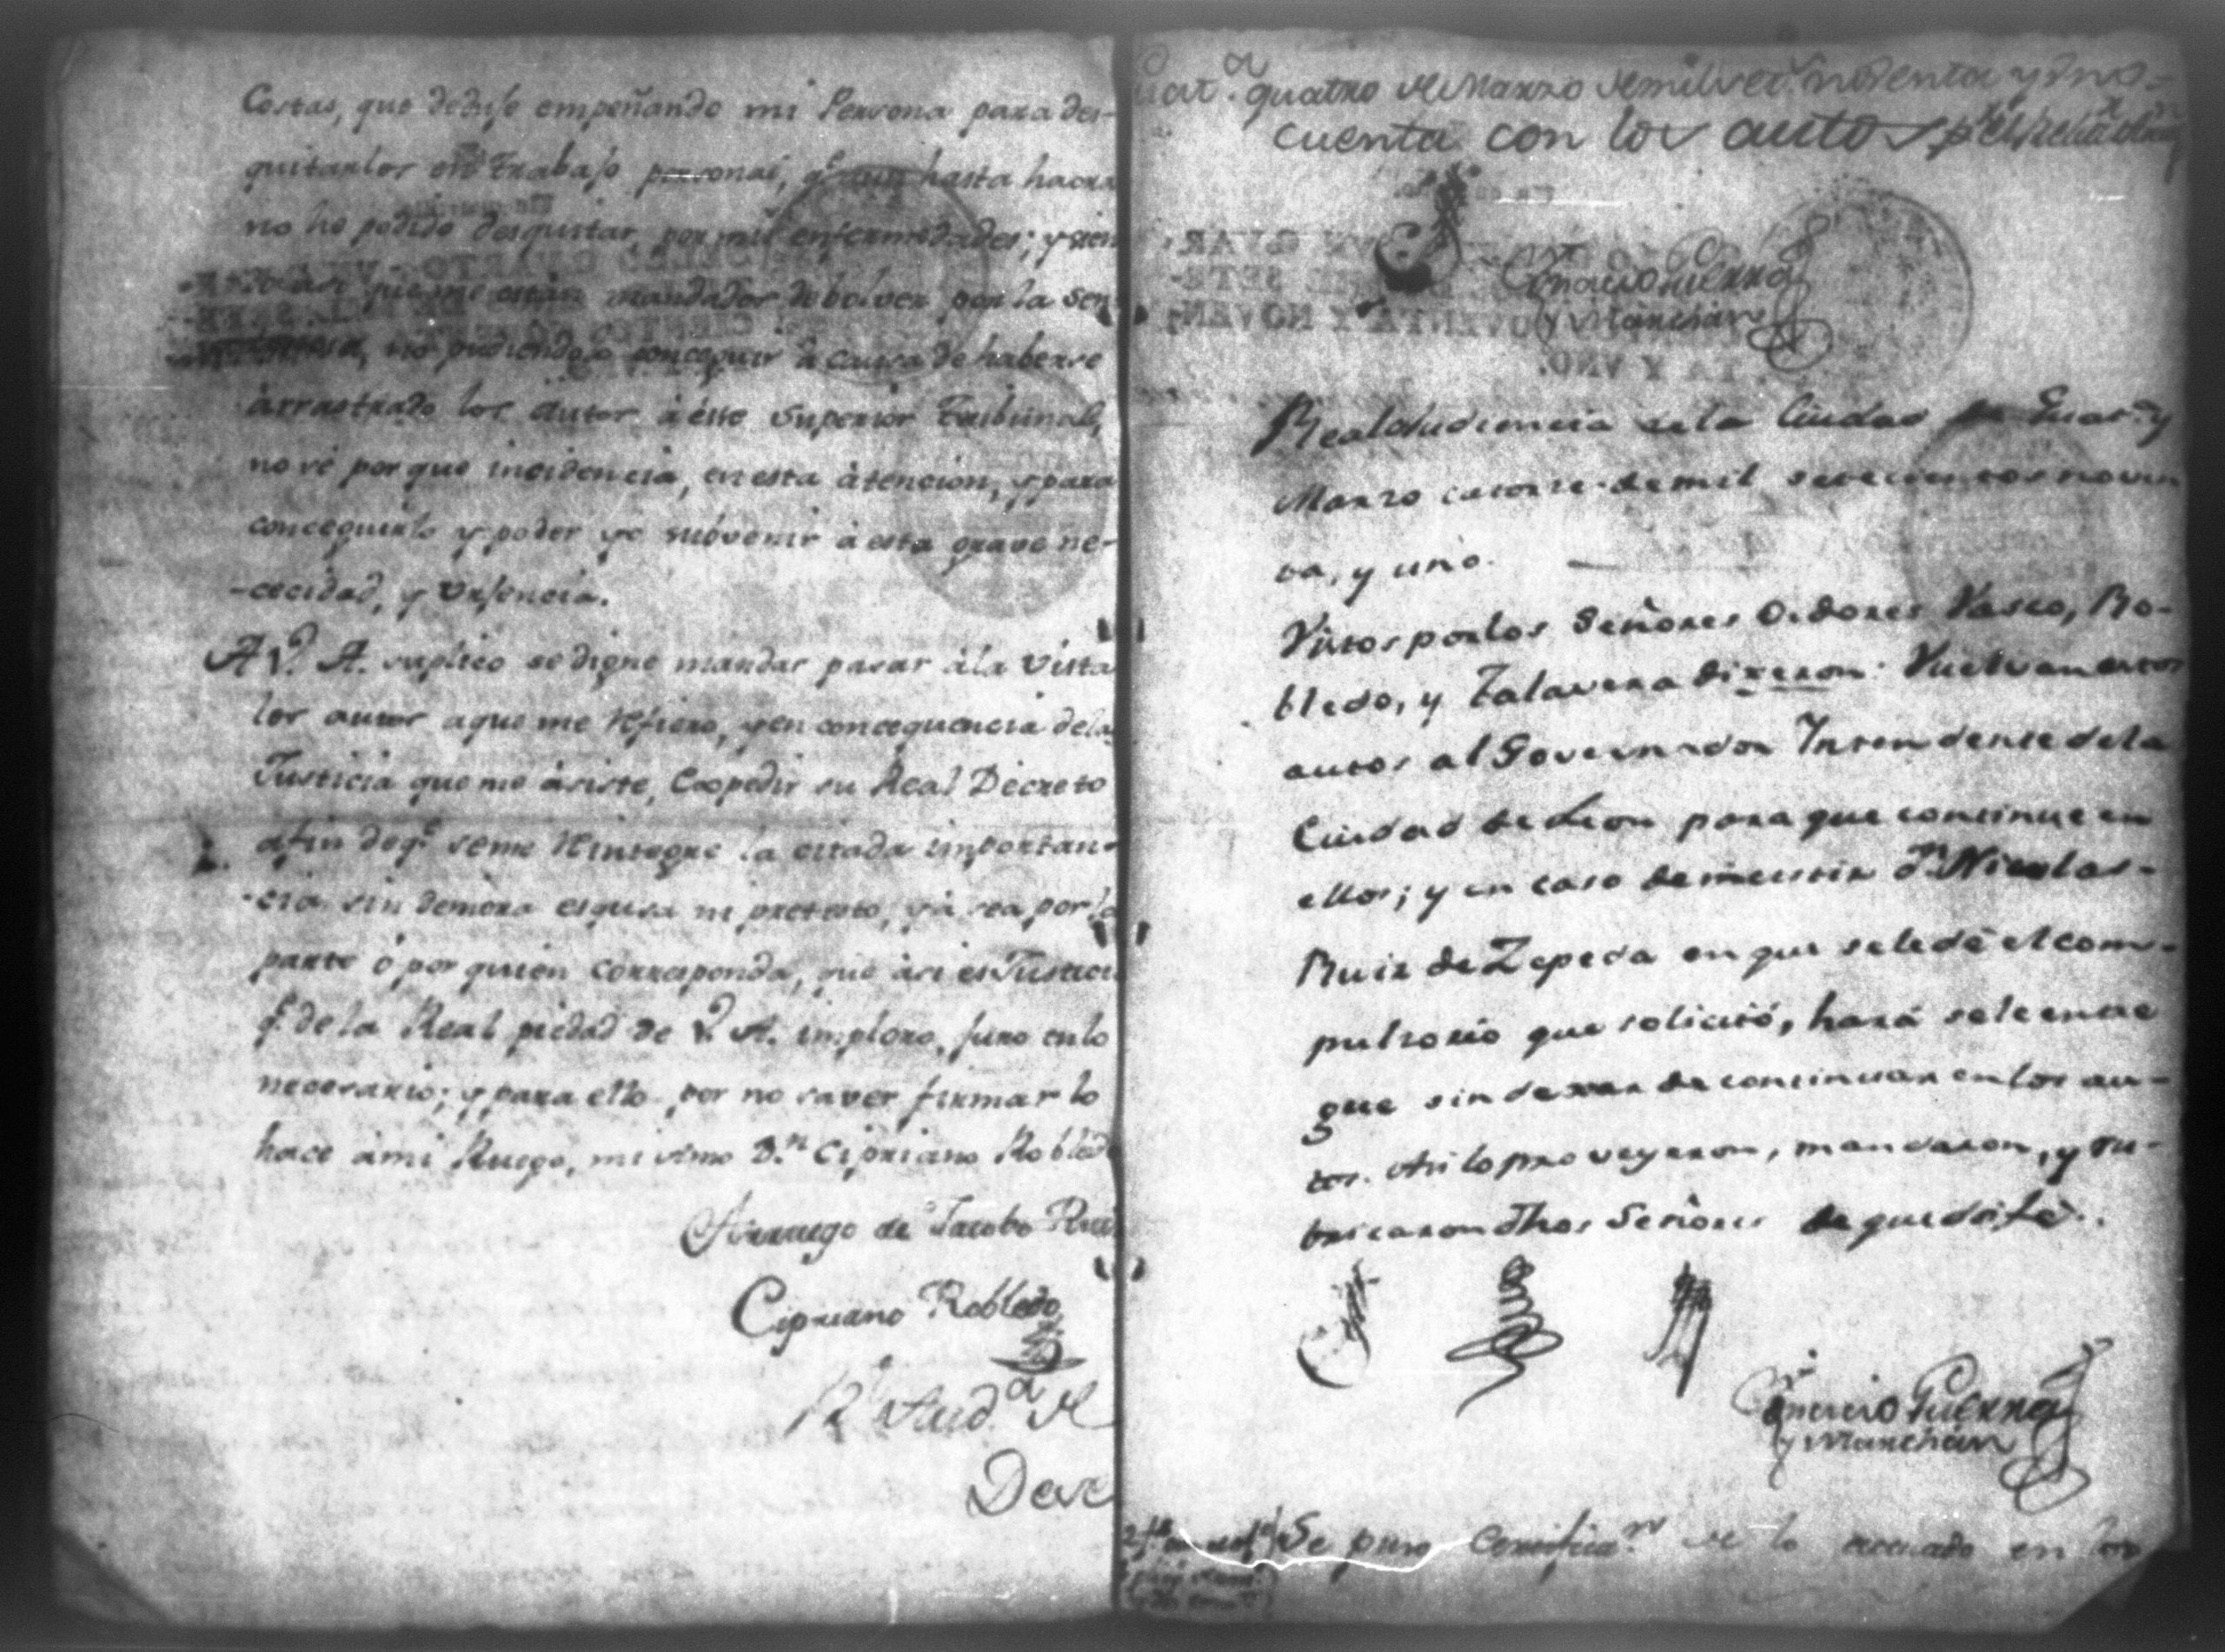 Costas, que deduje empeñando mi Persona para des-
quitarlos en trabajo personal, q.e aun hasta haora
no he podido desquitar, por mis enfermedades; y sien
estan mandados debolver por la Sen
no pudiendolo conceguir à causa de haberse
àrrastrado los autos à éste Superior Tribunal,
no sé por que incidencia, en esta àtencion, y para
conceguirlo y poder yo subvenir à esta grave ne-
-cecidad, y Urjencia.
A V. A. suplico se digne mandar pasar à la vista
los autos a que me refiero, y en concequencia de la
Justicia que me àsiste, Expedir su Real Decreto
afin de q.e se me Reintegre la citada importan-
-cia sin demora esqusa ni pretesto, yá sea por la
parte ó por quien corresponda, que àsi es Justicia
q.e de la Real piedad de V. A. imploro, juro en lo
necesario; y para ello por no saver firmar lo
hace à mi Ruego, mi Amo D.n Cipriano Robledo
Arruego de Jacobo Rui
Cipriano Robledo
R.l Aud.a de
Dese
Guat.a quatro de Marzo de mil set.s nobenta y uno=
cuenta con los autos p.r el Relator
Ignacio Guerra
y Marchan
Real Audiencia de la Ciudad de Guat.a y
Marzo catorce de mil setecientos noven
ta, y uno.
Vistos por los Señores Oidores Vasco, Ro-
bledo, y Talavera dixeron: Vuelvan estos
autos al Governador Intendente de la
Ciudad de Leon para que continue en
ellos; y en caso de incistir D.n Nicolas-
Ruiz de Zepeda en que se le dé el com-
pulsorio que solicitó, hará se le entre
gue sin dexar de continuar en los au-
tos. Asi lo proveyeron, mandaron, y ru-
bricaron dhos Señores de que doi fé.
Ignacio Guerra
y Marchan
Se puso Certificaz.n de lo actuado en los